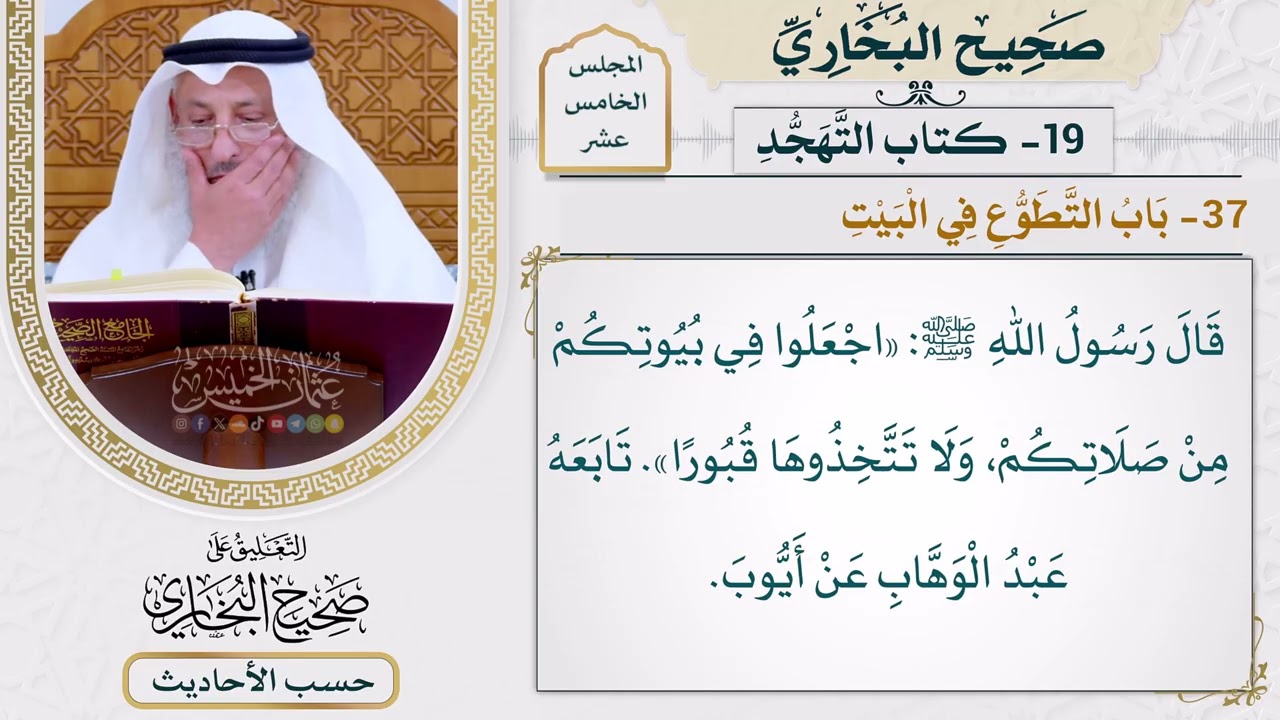 صَحِيح البُخَارِيِّ
المجلس
الخامس
عشر
19- كتاب التَّهَجُّدِ
37- بَابُ التَّطَوُّعِ فِي الْبَيْتِ
قَالَ رَسُولُ اللهِ ﷺ: «اجْعَلُوا فِي بُيُوتِكُمْ
مِنْ صَلَاتِكُمْ، وَلَا تَتَّخِذُوهَا قُبُورًا». تَابَعَهُ
عَبْدُ الْوَهَّابِ عَنْ أَيُّوبَ.
الجامع الصحيح
عُثمان الخميس
التَّعْلِيقُ عَلَى
صَحِيحُ البُخَارِي
حسب الأحاديث